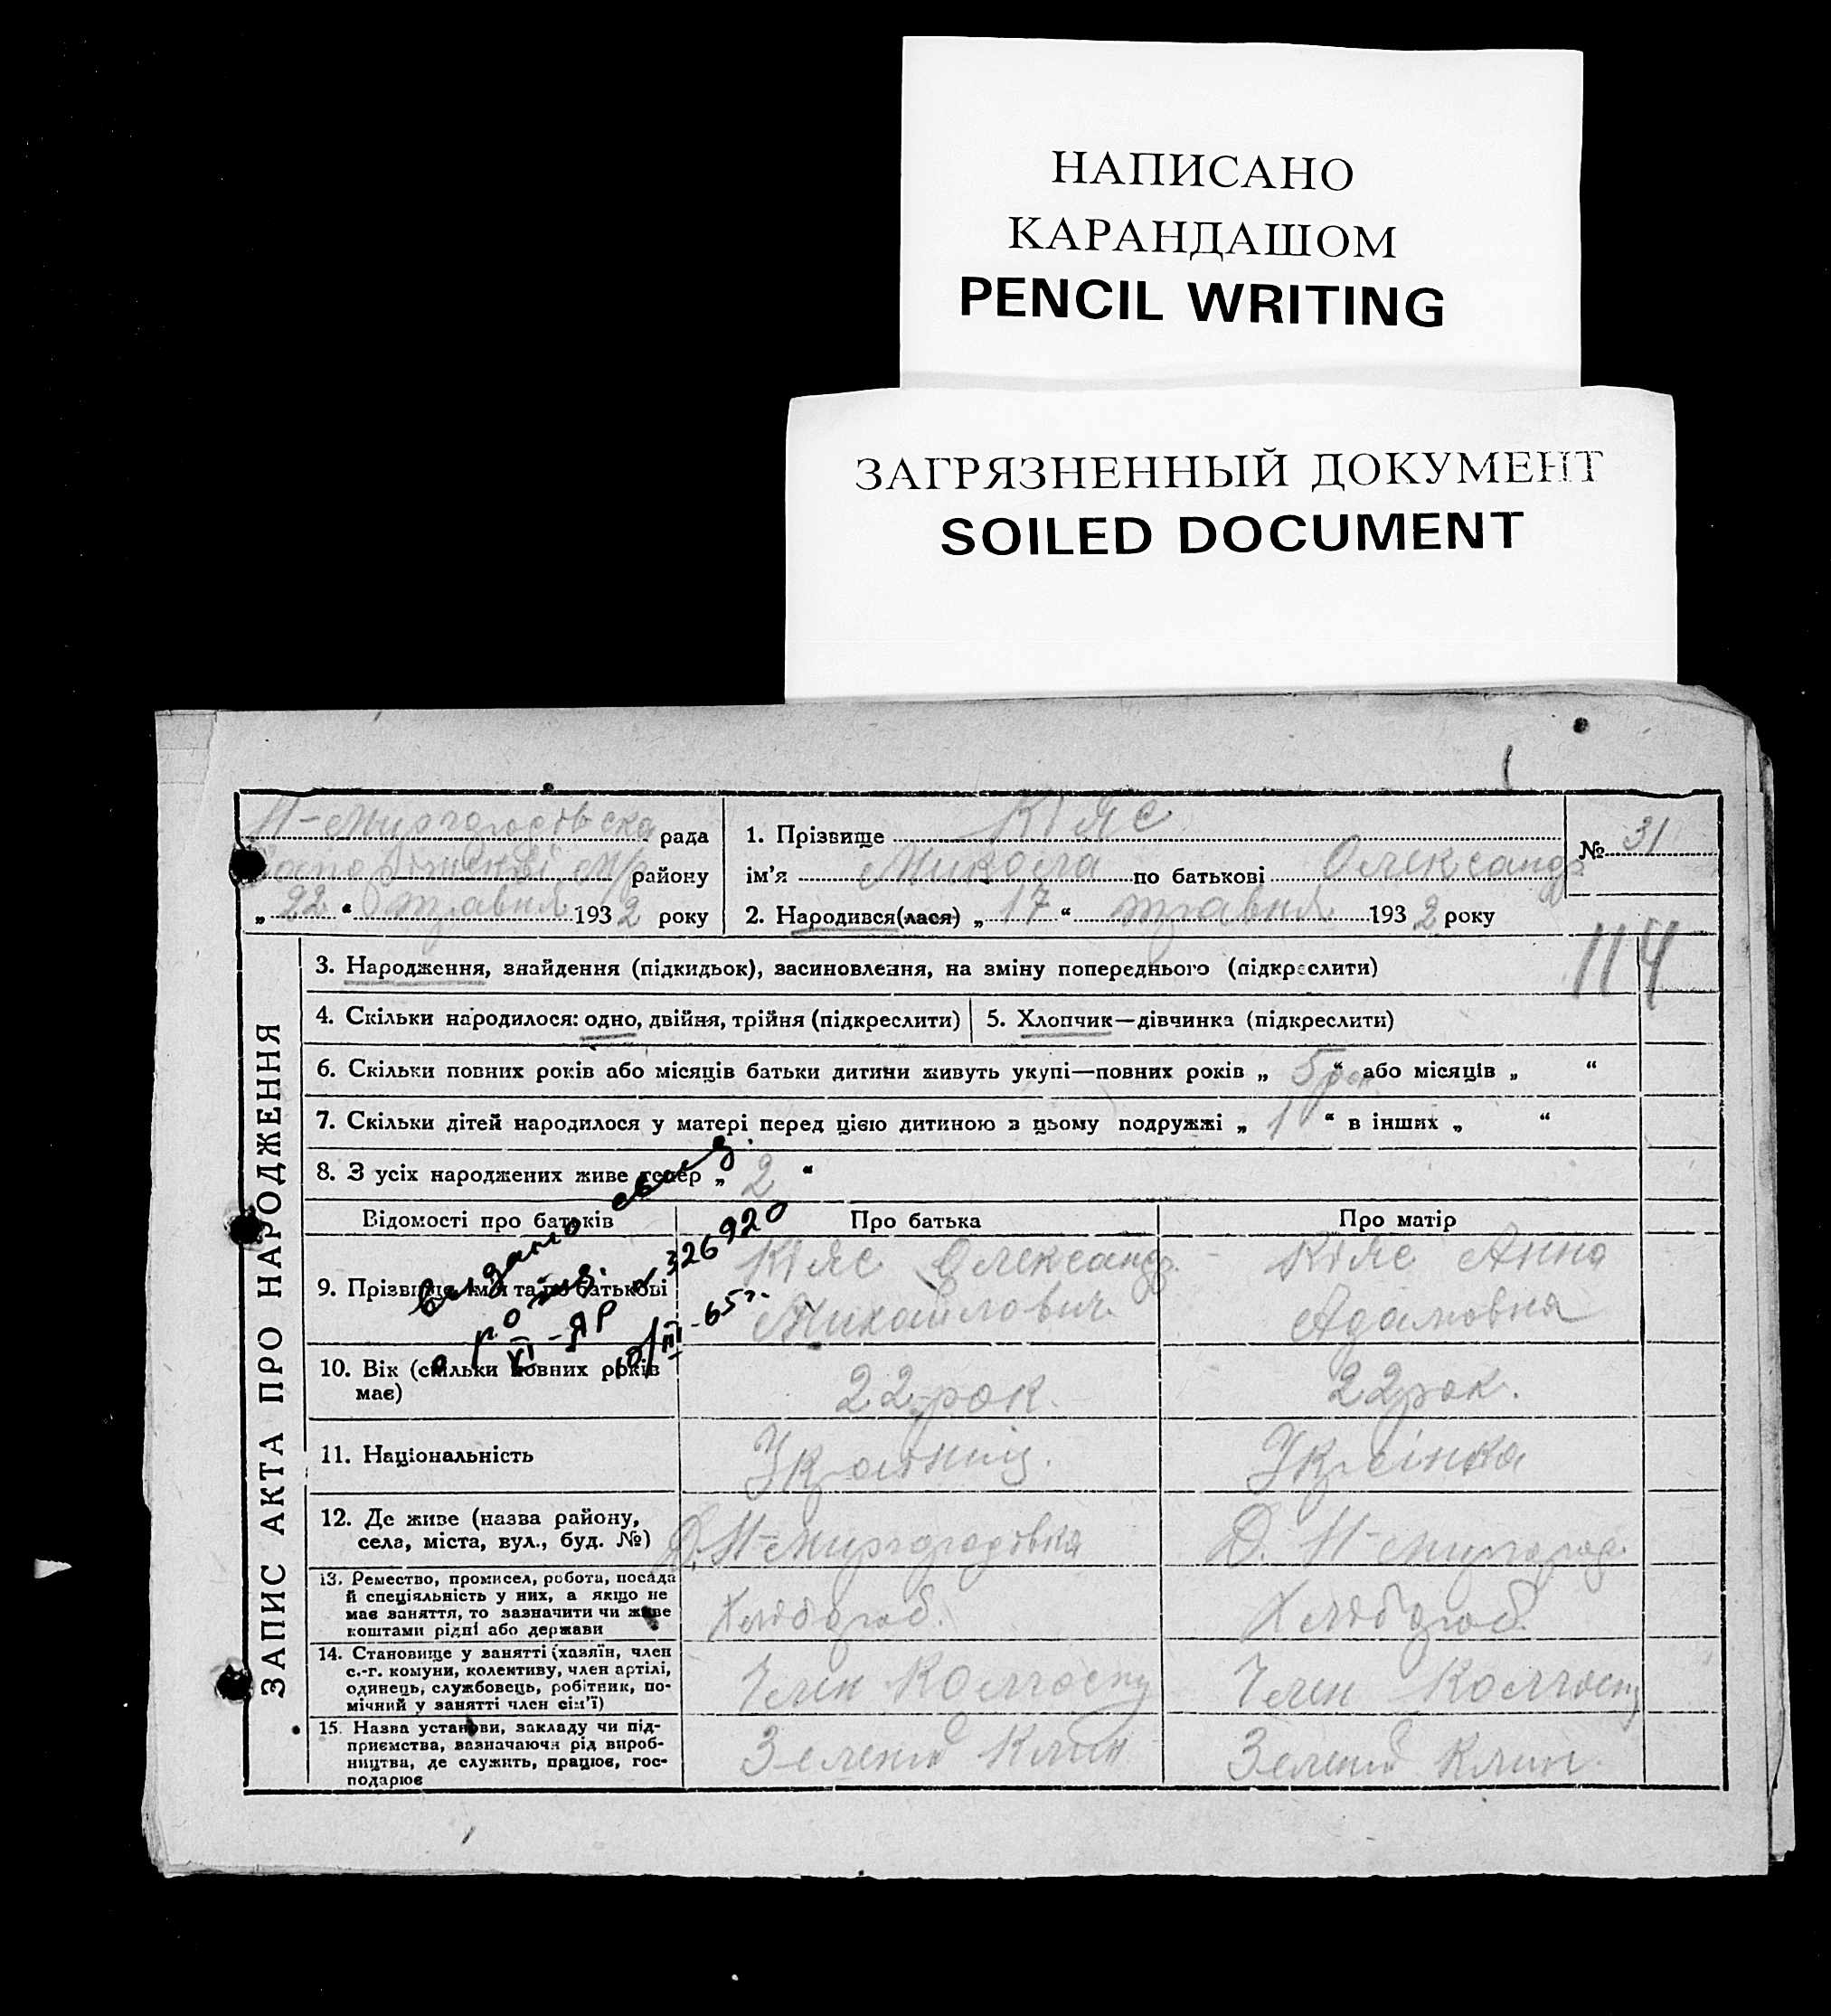 НАПИСАНО
КАРАНДАШОМ
PENCIL WRITING
ЗАГРЯЗНЕННЫЙ ДОКУМЕНТ
SOILED DOCUMENT
рада
району
„ 22 “ травня 1932 року
1. Прізвище Кіяс
ім’я Микола по батькові Олександр
2. Народився(лася) „ 17 “ травня 1932 року
№ 31
114
ЗАПИС АКТА ПРО НАРОДЖЕННЯ
3. Народження, знайдення (підкидьок), засиновлення, на зміну попереднього (підкреслити)
4. Скільки народилося: одно, двійня, трійня (підкреслити)
5. Хлопчик—дівчинка (підкреслити)
6. Скільки повних років або місяців батьки дитини живуть укупі—повних років „ 5 рок “ або місяців „ “
7. Скільки дітей народилося у матері перед цією дитиною в цьому подружжі „ 1 “ в інших „ “
8. З усіх народжених живе тепер „ 2 “
Відомості про батьків
Про батька
Про матір
9. Прізвище, ім’я та по батькові
Кіяс Олександр
Михайлович
Кіяс Анна
Адамовна
видано
о рожд. 326920
VI-ЯР 10/III-65г.
10. Вік (скільки повних років
має)
22 рок.
22 рок.
11. Національність
Україніц.
Украінка
12. Де живе (назва району,
села, міста, вул., буд. №)
Д. Н-Миргородовка
Д. Н-Миргород.
13. Ремество, промисел, робота, посада
й спеціяльність у них, а якщо не
має заняття, то зазначити чи живе
коштами рідні або держави
Хлібороб.
Хлібороб.
14. Становище у занятті (хазяїн, член
с.-г. комуни, колективу, член артілі,
одинець, службовець, робітник, по-
мічний у занятті член сім’ї)
Член Колгоспу
Член Колгоспу
15. Назва установи, закладу чи під-
приємства, вазначаючи рід вироб-
ництва, де служить, працює, гос-
подарює
Зелений Клин
Зелений Клин.